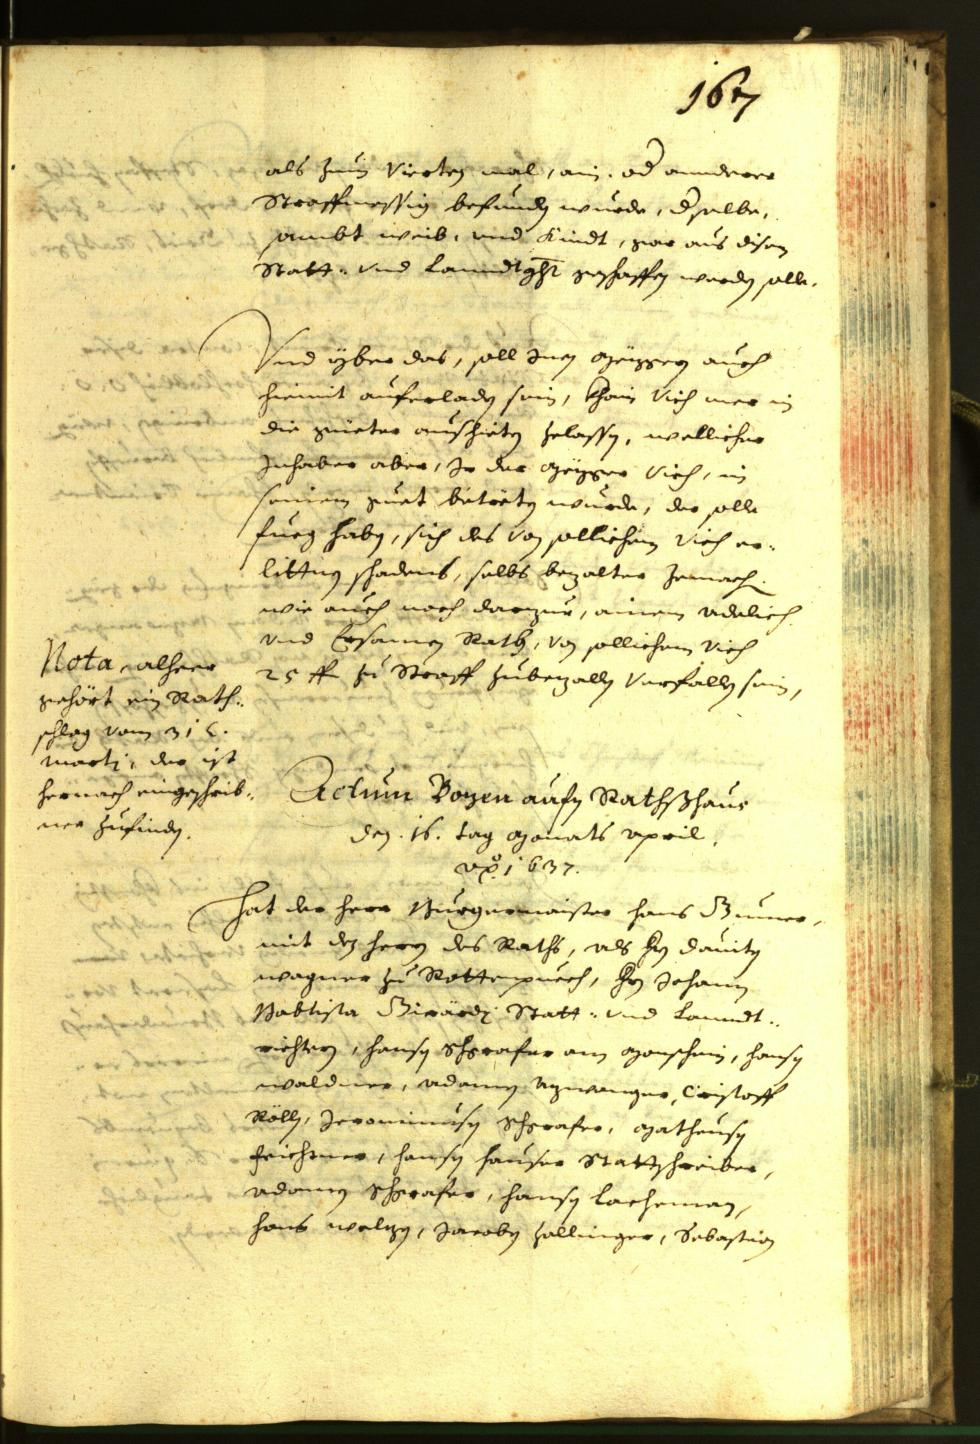 167
als zum Vierten mal, ain. od annderer
Straffmessig befunden wurde, dselbe,
sambt weib, vnd Kindt, gar aus disen
Statt- vnd Lanndtght geschaffen werden solle.
Vnd yber das, soll Inen auch
hiemit auferladen sein, khain Vich mer in
die güeter zelassen, wellicher
Inhaber aber, Ir der Vich, in
seinem guet betreten wurde, der solle
fueg haben, sich des von sollichem Vich er-
litnen schadens, selbs bezalter zemachen
wie auch noch darzue, ainem
vnd Ersamen Rath, von sollichem Vich
25 fl zu Straff zubezallen Verfallen sein,
Nota, alheer
gehört ein Rath-
schlag vom 31 t.
martj, der ist
hernach eingeschrib-
ner zufinden.
Actum Bozen aufm Rathßhaus
den .16. tag Monats April,
Ao. 1637.
Hat der herr Burgermaister Hans
mit den herrn des Raths, als Hn Daviten
Wagner zu Rottenpuech, Hn Johann
Babtista Statt- vnd Lanndt-
richtern, Hansen Schgrafer am Hansen
Waldner, Adamen Cristoff
Röllen, Jeronimusen Schgrafer, Matheusen
Feichtner, Hansen Hauser Stattschreiber,
Adamen Schgrafer, Hansen Lacheman,
Hans Jacoben Zallinger, Sebastian